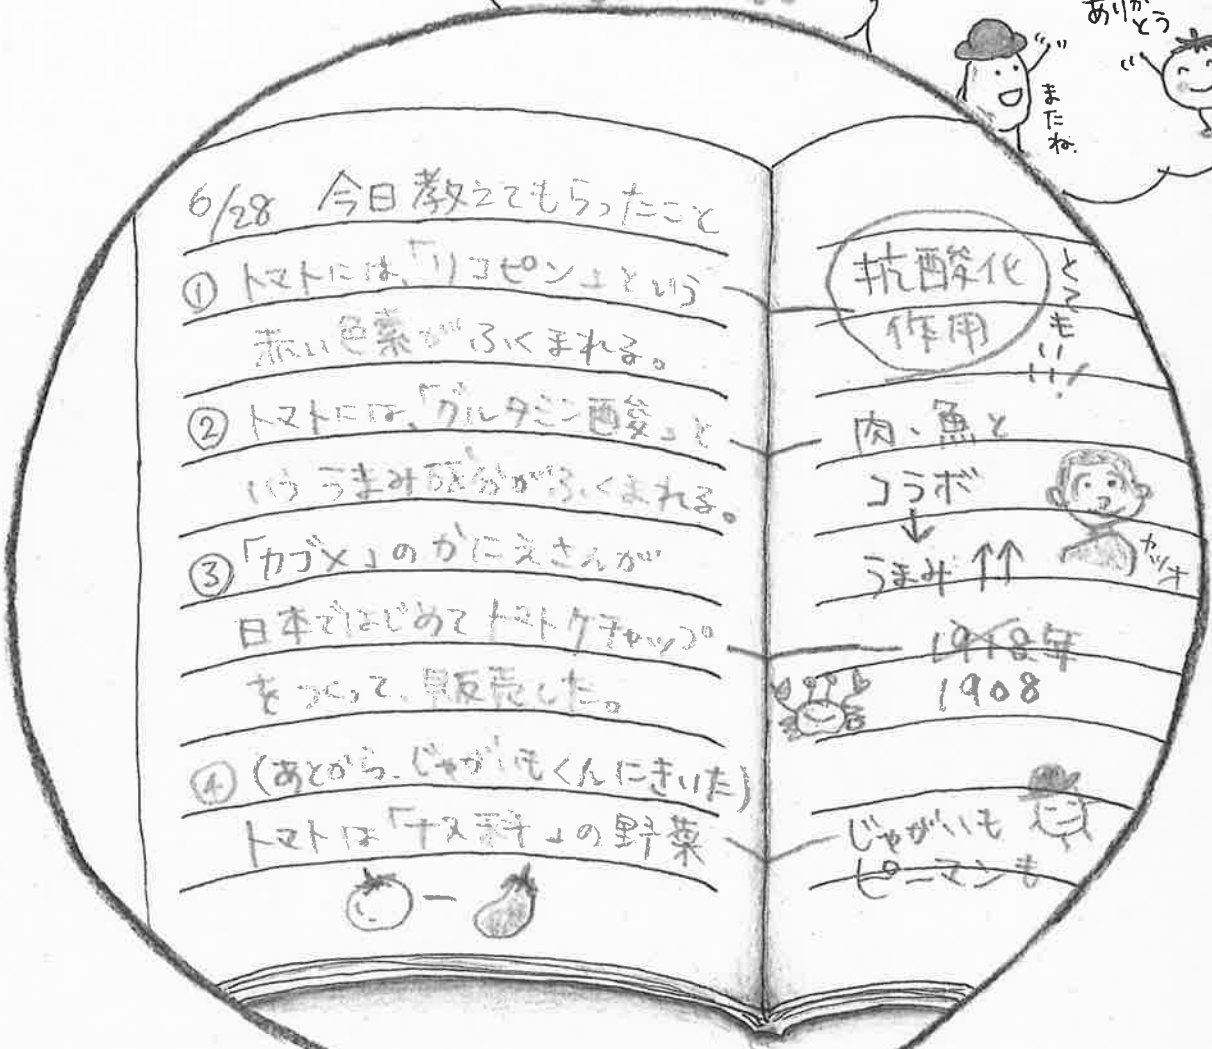 ありがとう
またね.
6/28 今日教えてもらったこと
① トマトには、「リコピン」という
赤い色素がふくまれる。
② トマトには、「グルタミン酸」と
いううまみ成分がふくまれる。
③ 「カゴメ」のかにえさんが
日本ではじめてトマトケチャップ
をつくって、販売した。
④ (あとから、じゃがいもくんにきいた)
トマトは「ナス科」の野菜
抗酸化
作用
とても!!!
肉・魚と
コラボ
↓
うまみ↑↑
カツオ
1918年
1908
じゃがいも
ピーマンも